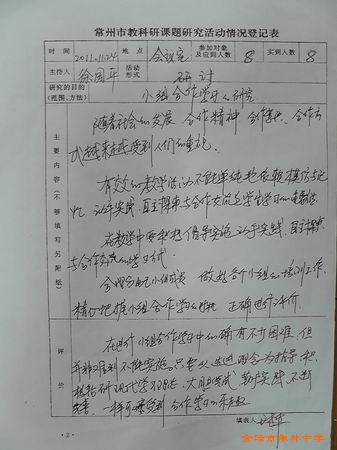 常州市教科研课题研究活动情况登记表
时间 2011.11.24 地点 会议室 参加对象及应到人数 8 实到人数 8
主持人 徐国平 活动形式 研讨
研究的目的(范围、方法) 小组合作学习的研究
主要内容(不够填写另附纸)
随着社会的发展 合作精神 合作意识、合作方
式越来越受到人们的重视。
有效的教学活动不能单纯地依赖模仿与记
忆 动手实践、自主探索与合作交流是学生学习的重要方式
在教学中要积极倡导实施动手实践、自主探索
与合作交流的学习方式
合理分配小组成员 做好各个小组的培训工作、
精心把握小组合作学习的时机 正确进行评价。
评价
在进行小组合作学习中的确有不少困难,但
并非难到不能实施。只要以
理念为指导 积
极钻研现代学习理论、大胆尝试 勤于实践 不断
完善,一样可以享受到合作学习的乐趣
填表人
- 2 -
金坛市
中学